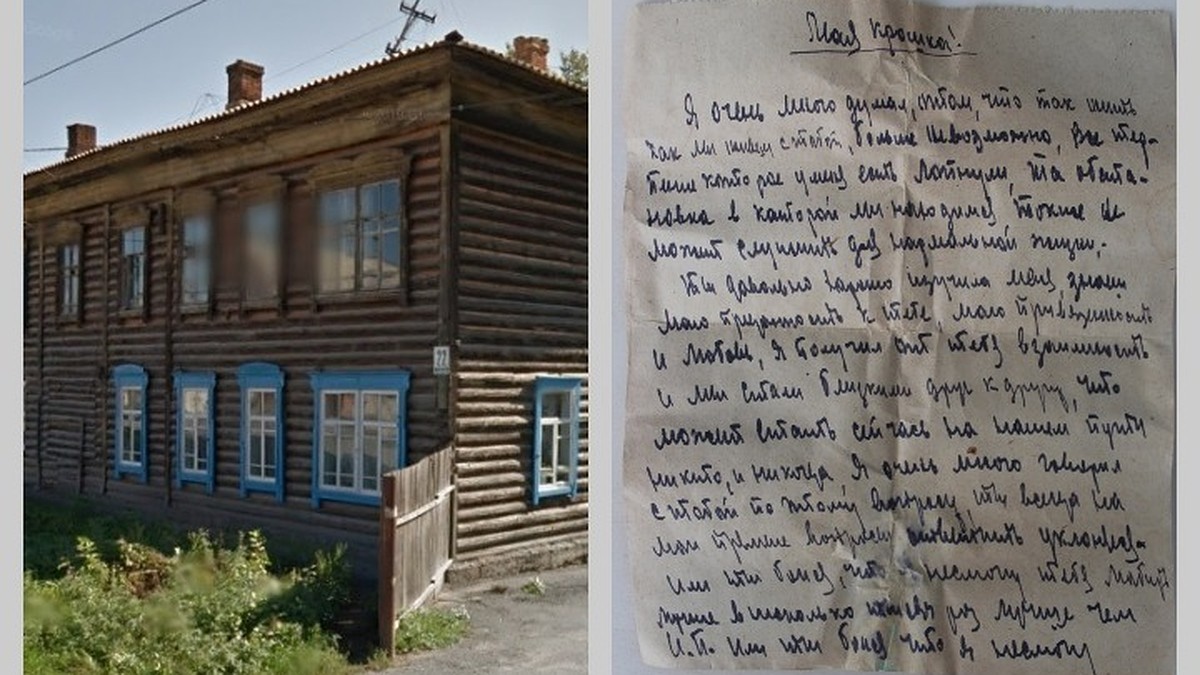 22
Мая крошка!
Я очень много думал, о том, что так жить
как мы живем с тобой, больше невозможно, все тер-
пение которое у меня есть лопнули, та обста-
новка в каторой мы находимся тожие не
может служить для нормальной жизни.
Ты давольно харашо изучила меня, знаеш
мою преданность к тебе, маю привязанность
и любовь, я получил от тебя взаимность
и мы стали близкими друг к другу, что
может стать сейчас на нашем пути
никто, и никогда, Я очень много говарил
с табой по этому вопросу, ты всегда на
мои прямые вопросы
или ты боися, что я несмогу тебя любить
лучше в несколько раз лучше чем
И.П. Или ты боися что я несмогу